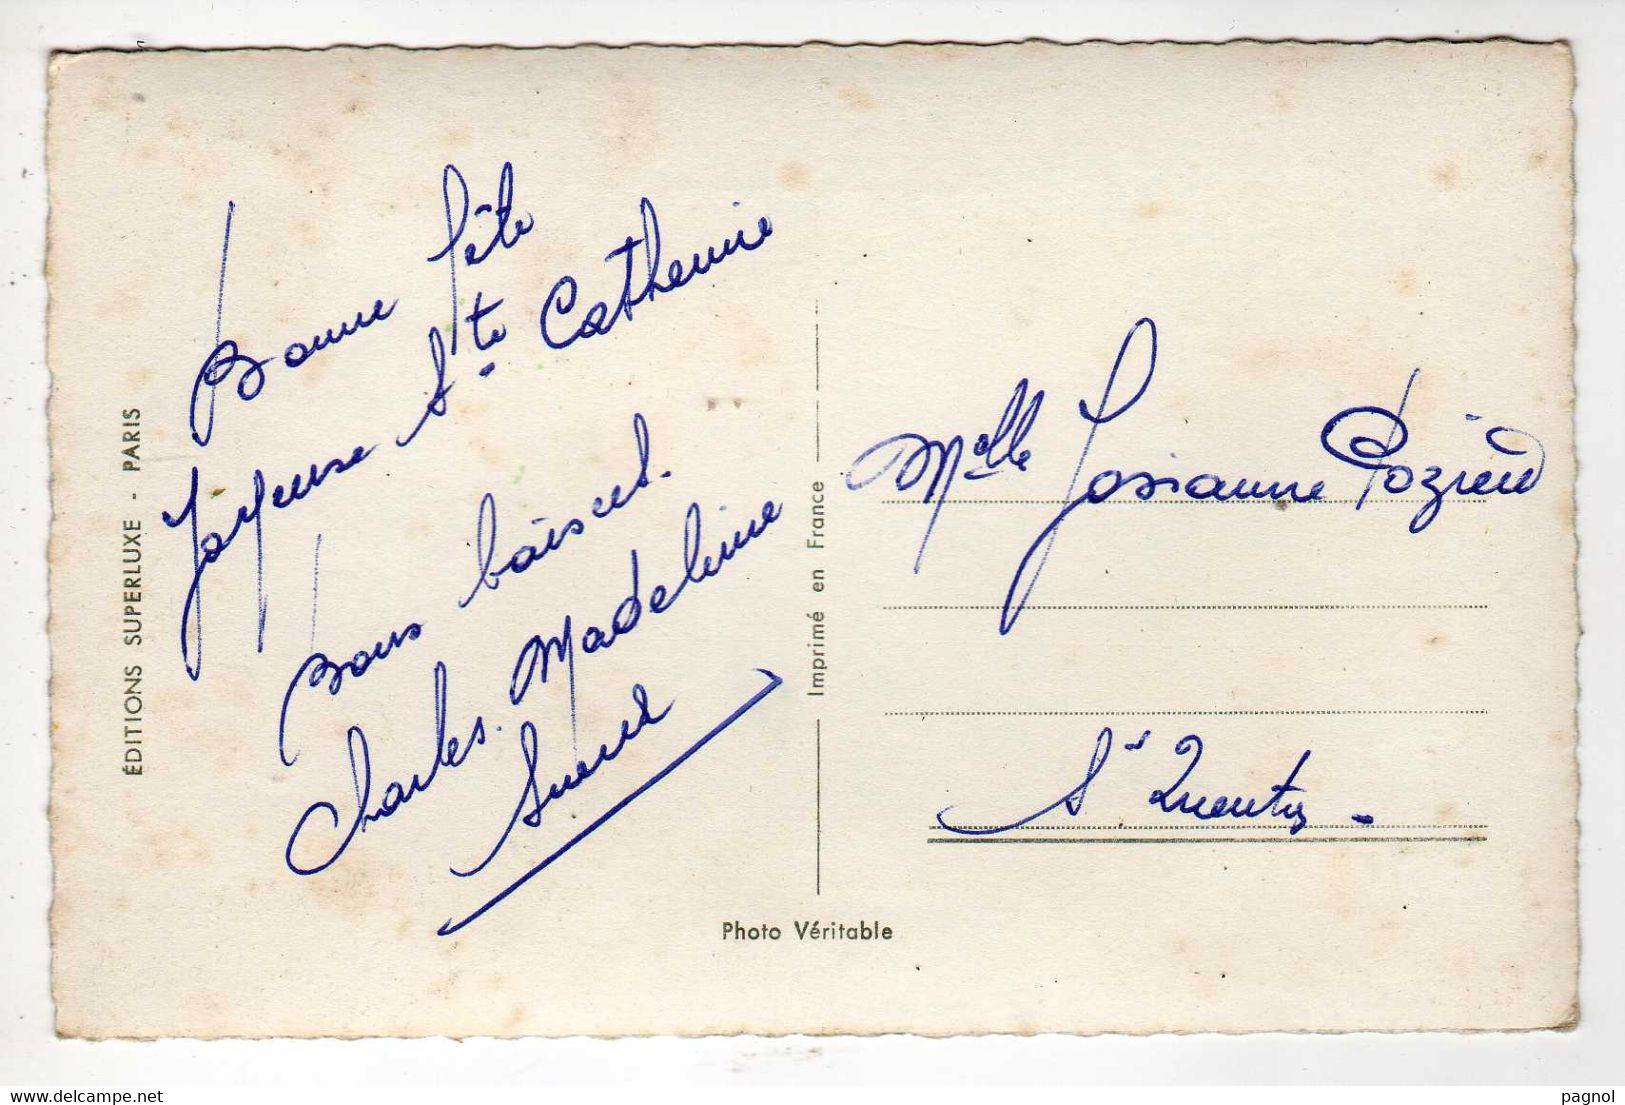 Bonne fête
Joyeuse Ste Catherine
Bons baisers.
Charles. Madeleine
ÉDITIONS SUPERLUXE - PARIS
Imprimé en France
Photo Véritable
Melle Josianne
St Quentin -
www.delcampe.net
pagnol